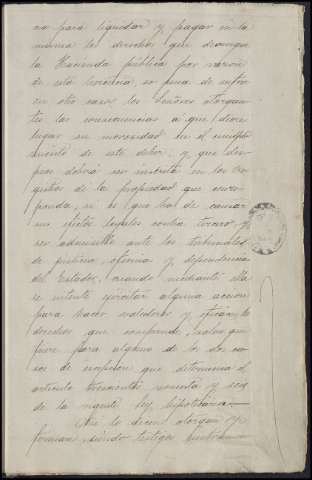 no para liquidar y pagar en la
misma los derechos que devengue
la Hacienda pública por razón
de esta herencia, so pena de sufrir
en otro caso, los Señores otorgan-
tes las consecuencias a que diere
lugar su morosidad en el cumpli-
miento de este deber; y que des-
pues deberá ser inscrita en los Re-
gistros de la propiedad que corres-
ponda, si es que ha de causar
sus efectos legales contra tercero, y
ser admisible ante los tribunales
de justicia, oficinas y dependencias
del Estado, cuando mediante ella
se intente ejercitar alguna accion
para hacer valederos y eficaces los
derechos que comprende, salvo que
fuere para alguno de los dos ca-
sos de excepcion que determina el
artículo trescientos noventa y seis
de la vigente ley hipotecaria.
Así lo dicen, otorgan y
firman, siendo testigos